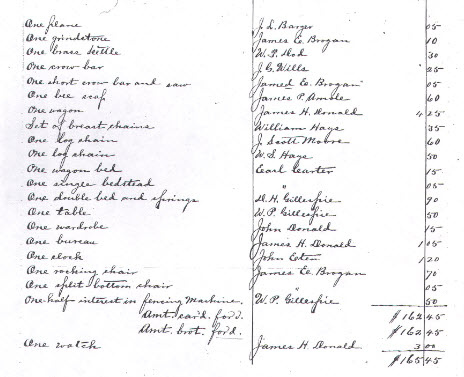 One plane J. L. Barger 05
One grindstone James E. Brogan 10
One brass kettle W. P. Hod 30
One crow bar J. G. Wills 25
One short crow bar and saw James E. Brogan 05
One bee scap James P. Amole 60
One wagon James H. Donald 4 25
Set of breast chains William Hays 35
One log chain J. Scott Moore 60
One log chain W. S. Hays 50
One wagon bed Earl Carter 15
One single bedstead " 05
One double bed and springs D. H. Gillespie 90
One table W. P. Gillespie 50
One wardrobe John Donald 15
One bureau James H. Donald 1 05
One clock John 1 20
One rocking chair James E. Brogan 70
One split bottom chair " 05
One-half interest in fencing machine. W. P. Gillespie 50
Amt. car'd. for'd. $162 45
Amt. brot. for'd. $162 45
One watch James H Donald 3 00
$165 45